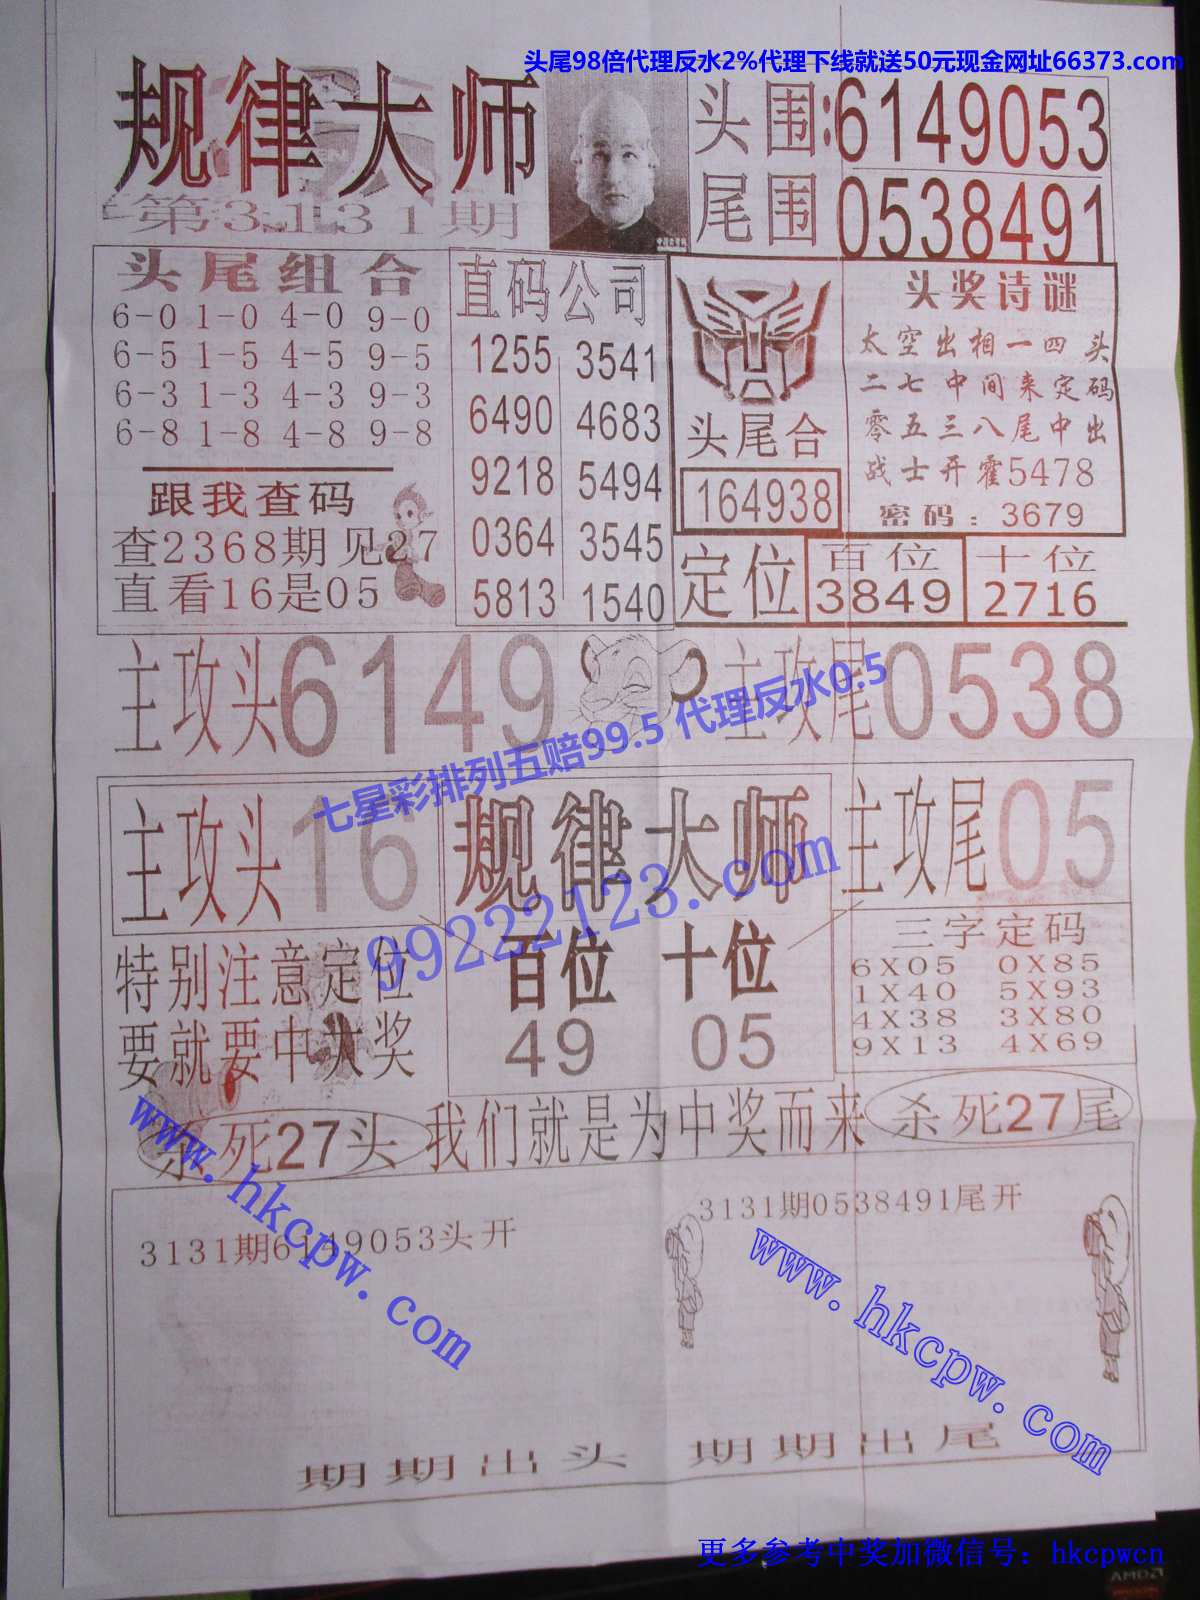 头尾98倍代理反水2%代理下线就送50元现金网址66373.com
规律大师
第3131期
头围:6149053
尾围0538491
头尾组合
6-0 1-0 4-0 9-0
6-5 1-5 4-5 9-5
6-3 1-3 4-3 9-3
6-8 1-8 4-8 9-8
跟我查码
查2368期见27
直看16是05
直码公司
1255 3541
6490 4683
9218 5494
0364 3545
5813 1540
头尾合
164938
头奖诗谜
太空出相一四头
二七中间来定码
零五三八尾中出
战士开霍5478
密码:3679
定位
百位
3849
十位
2716
主攻头6149
主攻尾0538
七星彩排列五赔99.5 代理反水0.5
主攻头16
规律大师
主攻尾05
99222123.com
特别注意定位
要就要中大奖
百位 十位
49 05
三字定码
6X05 0X85
1X40 5X93
4X38 3X80
9X13 4X69
杀死27头
我们就是为中奖而来
杀死27尾
www.hkcpw.com
www.hkcpw.com
3131期6149053头开
3131期0538491尾开
期期出头 期期出尾
更多参考中奖加微信号：hkcpwcn
AMD